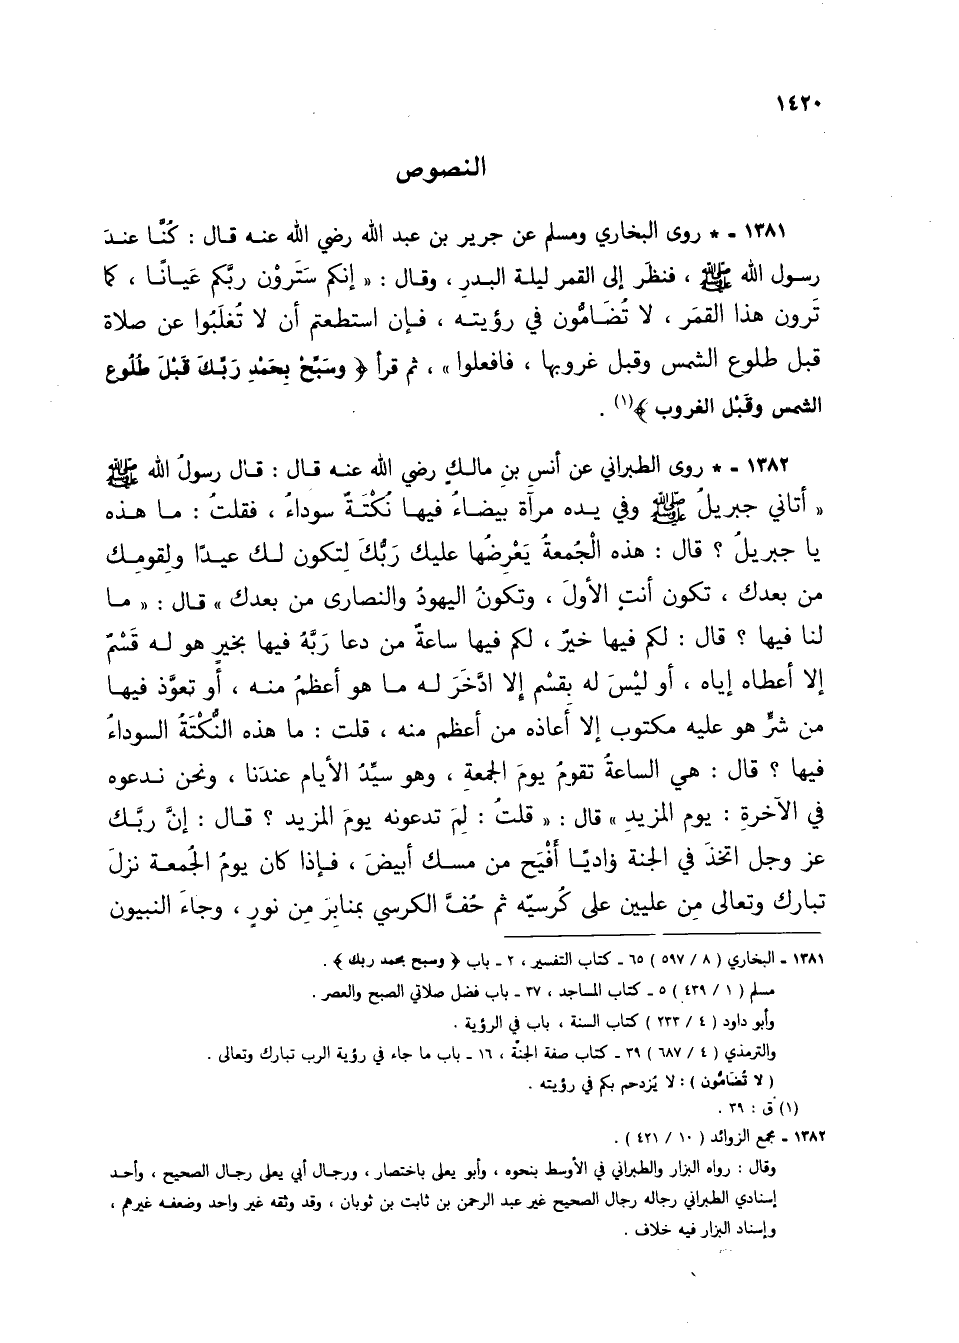 ١٤٢٠
النصوص
١٣٨١ ـ * روى البخاري ومسلم عن جرير بن عبد الله رضي الله عنه قال : كُنَّا عندَ
رسول الله ﷺ ، فنظَر إلى القمر ليلة البدرِ ، وقال : « إنكم سَتَروْن ربَّكم عَيـانًـا ، كما
تَرون هذا القمَر ، لا تُضَـامُّون في رؤيتـه ، فـإن استطعتم أن لا تُغلَبُوا عن صلاة
قبل طلوع الشمس وقبل غروبها ، فافعلوا » ، ثم قرأ ﴿ وسَبِّحْ بِحَمْدِ رَبِّـكَ قَبْلَ طلُوع
الشمس وقَبْل الغروب ﴾(١) .
١٣٨٢ ـ * روى الطبراني عن أنسِ بنِ مالـكٍ رضي الله عنـه قـال : قـال رسولُ الله ﷺ
« أتاني جبريلُ ﷺ وفي يـده مرآة بيضاءُ فيهـا نُكْتَـةٌ سوداءُ ، فقلتُ : مـا هـذه
يا جبريلُ ؟ قال : هذه الْجُمعةُ يَعْرِضُها عليك رَبُّكَ لِتكون لـك عيـدًا ولِقومِـك
من بعدك ، تكون أنتِ الأولَ ، وتكونُ اليهودُ والنصارى من بعدك » قـال : « مـا
لنا فيها ؟ قال : لكم فيها خيرٌ ، لكم فيها ساعةٌ من دعا رَبَّهُ فيها بخيرٍ هو لـه قَسْمٌ
إلا أعطاه إياه ، أو ليْسَ له بِقسْمٍ إلا ادَّخَرَ لـه مـا هو أعظمُ منـه ، أو تعوَّذ فيهـا
من شرٍّ هو عليه مكتوب إلا أعاذه من أعظم منه ، قلت : ما هذه النُّكْتَةُ السوداءُ
فيها ؟ قال : هي الساعةُ تقومُ يومَ الجمعةِ ، وهو سيِّدُ الأيام عندَنا ، ونحن نـدعوه
في الآخرةِ : يوم المزيدِ » قال : « قلتُ : لِمَ تدعونه يومَ المزيد ؟ قـال : إنَّ ربَّـك
عز وجل اتخذَ في الجنة وَاديًـا أَفْيَح من مسـك أبيضَ ، فـإذا كان يومُ الجُمعـة نزلَ
تبارك وتعالى مِن عليين على كُرسيّه ثم حُفَّ الكرسي بمنابِرَ مِن نورٍ ، وجاءَ النبيون
١٣٨١ ـ البخاري ( ٨ / ٥٩٧ ) ٦٥ ـ كتاب التفسير ، ٢ ـ باب ﴿ وسبح بحمد ربك ﴾ .
مسلم ( ١ / ٤٣٩ ) ٥ ـ كتاب المساجد ، ٣٧ ـ باب فضل صلاتي الصبح والعصر .
وأبو داود ( ٤ / ٢٣٣ ) كتاب السنة ، باب في الرؤية .
والترمذي ( ٤ / ٦٨٧ ) ٣٩ ـ كتاب صفة الجنَّة ، ١٦ ـ باب ما جاء في رؤية الرب تبارك وتعالى .
( لا تُضَامُّون ) : لا يُزدحم بكم في رؤيته .
(١) ق : ٣٩ .
١٣٨٢ ـ مجمع الزوائد ( ١٠ / ٤٢١ ) .
وقال : رواه البزار والطبراني في الأوسط بنحوه ، وأبو يعلى باختصار ، ورجال أبي يعلى رجـال الصحيح ، وأحـد
إسنادي الطبراني رجاله رجال الصحيح غير عبد الرحمن بن ثابت بن ثوبان ، وقد وثقه غير واحد وضعفـه غيرهم ،
وإسناد البزار فيه خلاف .